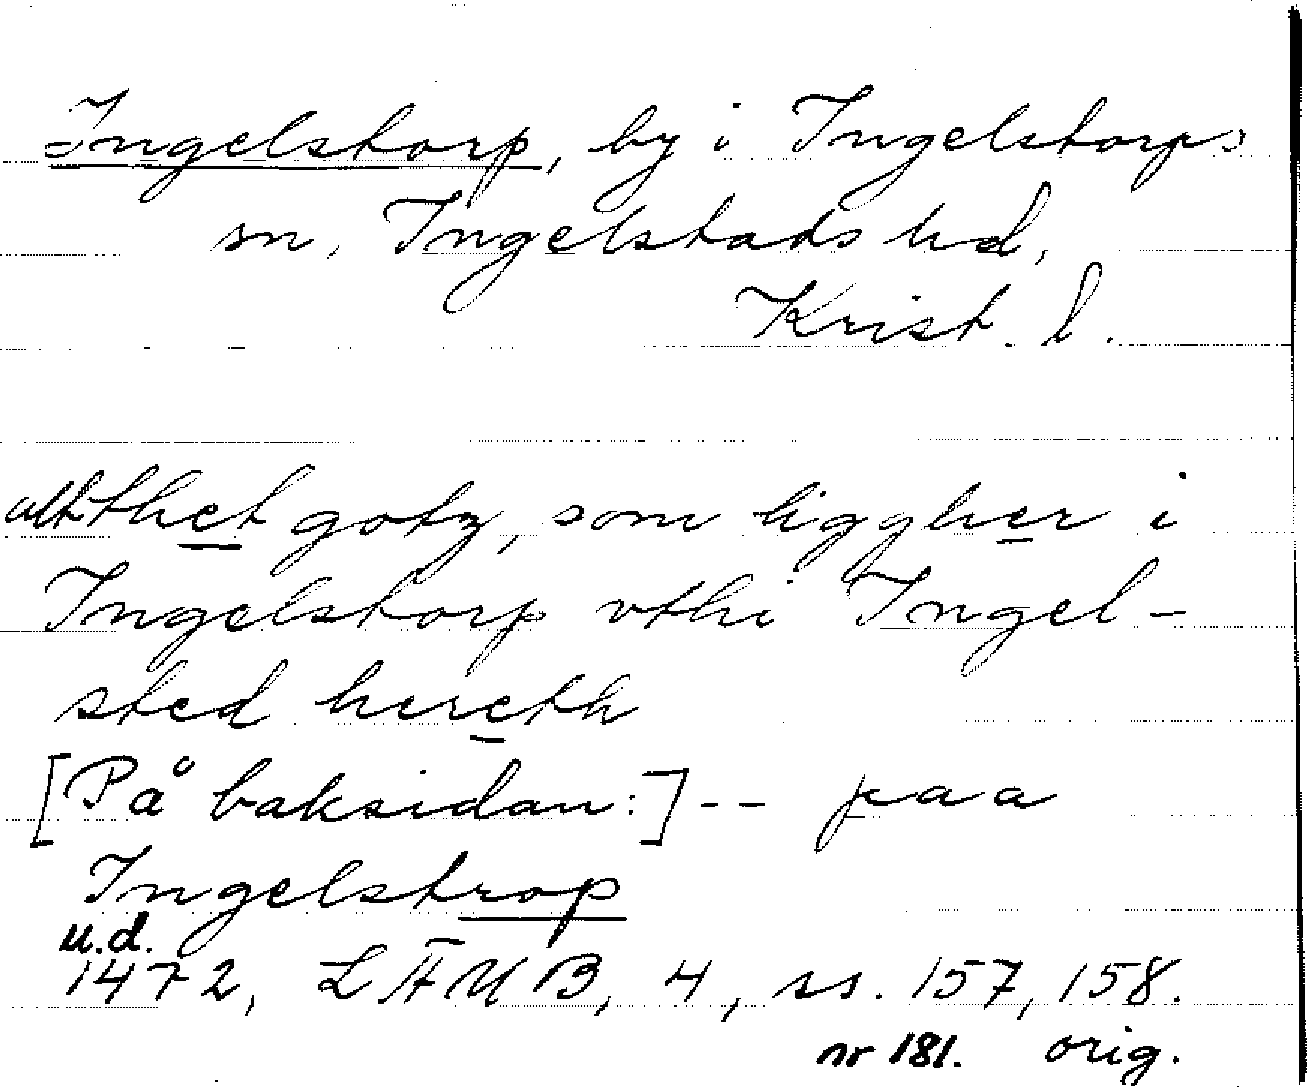 Ingelstorp, by i Ingelstorps
sn, Ingelstads hd,
Krist. l.
alt thet gotz, som liggher i
Ingelstorp vthi Ingel-
sted hereth
[På baksidan:] -- paa
Ingelstrop
u.d.
1472, LÄUB, 4, ss. 157, 158.
nr 181. orig.